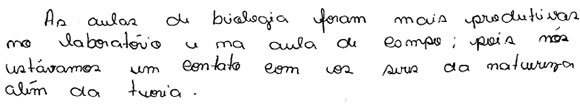 As aulas de biologia foram mais produtivas
no laboratório e na aula de campo; pois nós
estávamos em contato com os seres da natureza
além da teoria.